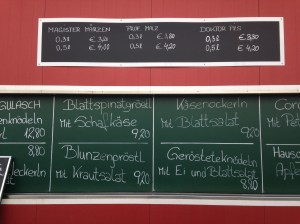 MAGISTER MÄRZEN
0,3l € 3,20
0,5l € 4,00
PROF. PILZ
€ 3,80
€ 4,20
DOKTOR
0,3l € 3,80
0,5l € 4,20
GULASCH
12,80
8,80
Blattspinatgröstl
Mit Schafkäse
9,20
Blunzengröstl
Mit Krautsalat 9,20
Käsenockerln
Mit Blattsalat
9,20
Gerösteteknödeln
Mit Ei und Blattsalat
8,80
Mit